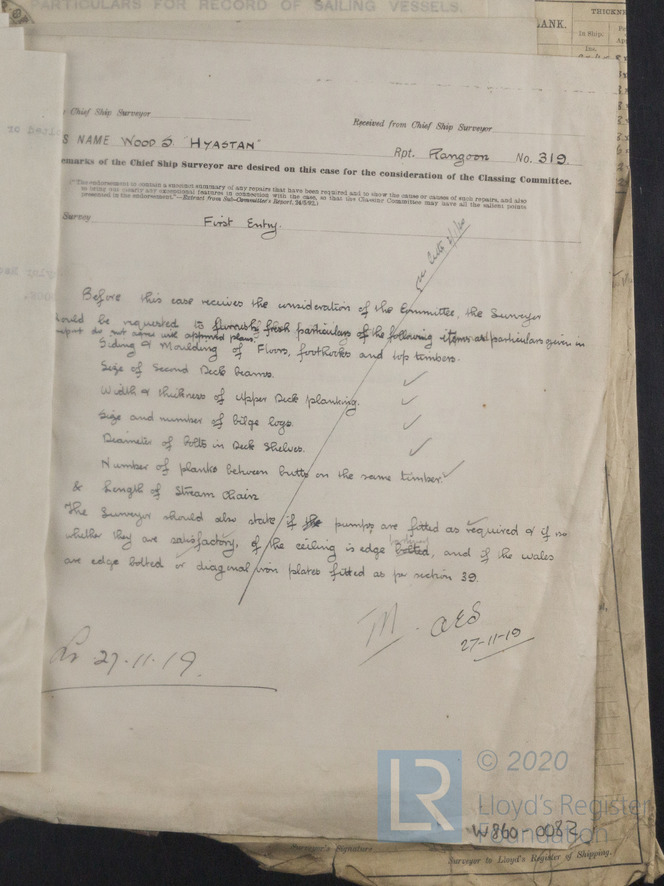 PARTICULARS FOR RECORD OF SAILING VESSELS.
THICKNE
ANK.
In Ship.
Chief Ship Surveyor
Received from Chief Ship Surveyor
S NAME Wood S "Hyastan" Rpt. Rangoon No. 319
emarks of the Chief Ship Surveyor are desired on this case for the consideration of the Classing Committee.
("The endorsement to contain a succinct summary of any repairs that have been required and to show the cause or causes of such repairs, and also
to bring out clearly any exceptional features in connection with the case, so that the Classing Committee may have all the salient points
presented in the endorsement."—Extract from Sub-Committee's Report, 24/5/92.)
Survey First Entry.
Before this case receives the consideration of the Committee, the Surveyor
ould be requested to furnish fresh particulars of the following items as particulars given in
report do not agree with approved plans.
Siding & Moulding of Floors, foothooks and top timbers.
Size of Second Deck beams.
Width & thickness of upper Deck planking.
Size and number of bilge logs.
Diameter of bolts in Deck Shelves.
Number of planks between butts on the same timber.
& Length of Stream Chain
The Surveyor should also state if the pumps are fitted as required & if so
whether they are satisfactory, if the ceiling is edge bolted, and if the wales
are edge bolted or diagonal iron plates fitted as per section 39.
AES
27-11-19
27.11.19.
LR
© 2020
Lloyd's Register
Foundation
W860-0032
Surveyor's Signature
Surveyor to Lloyd's Register of Shipping.